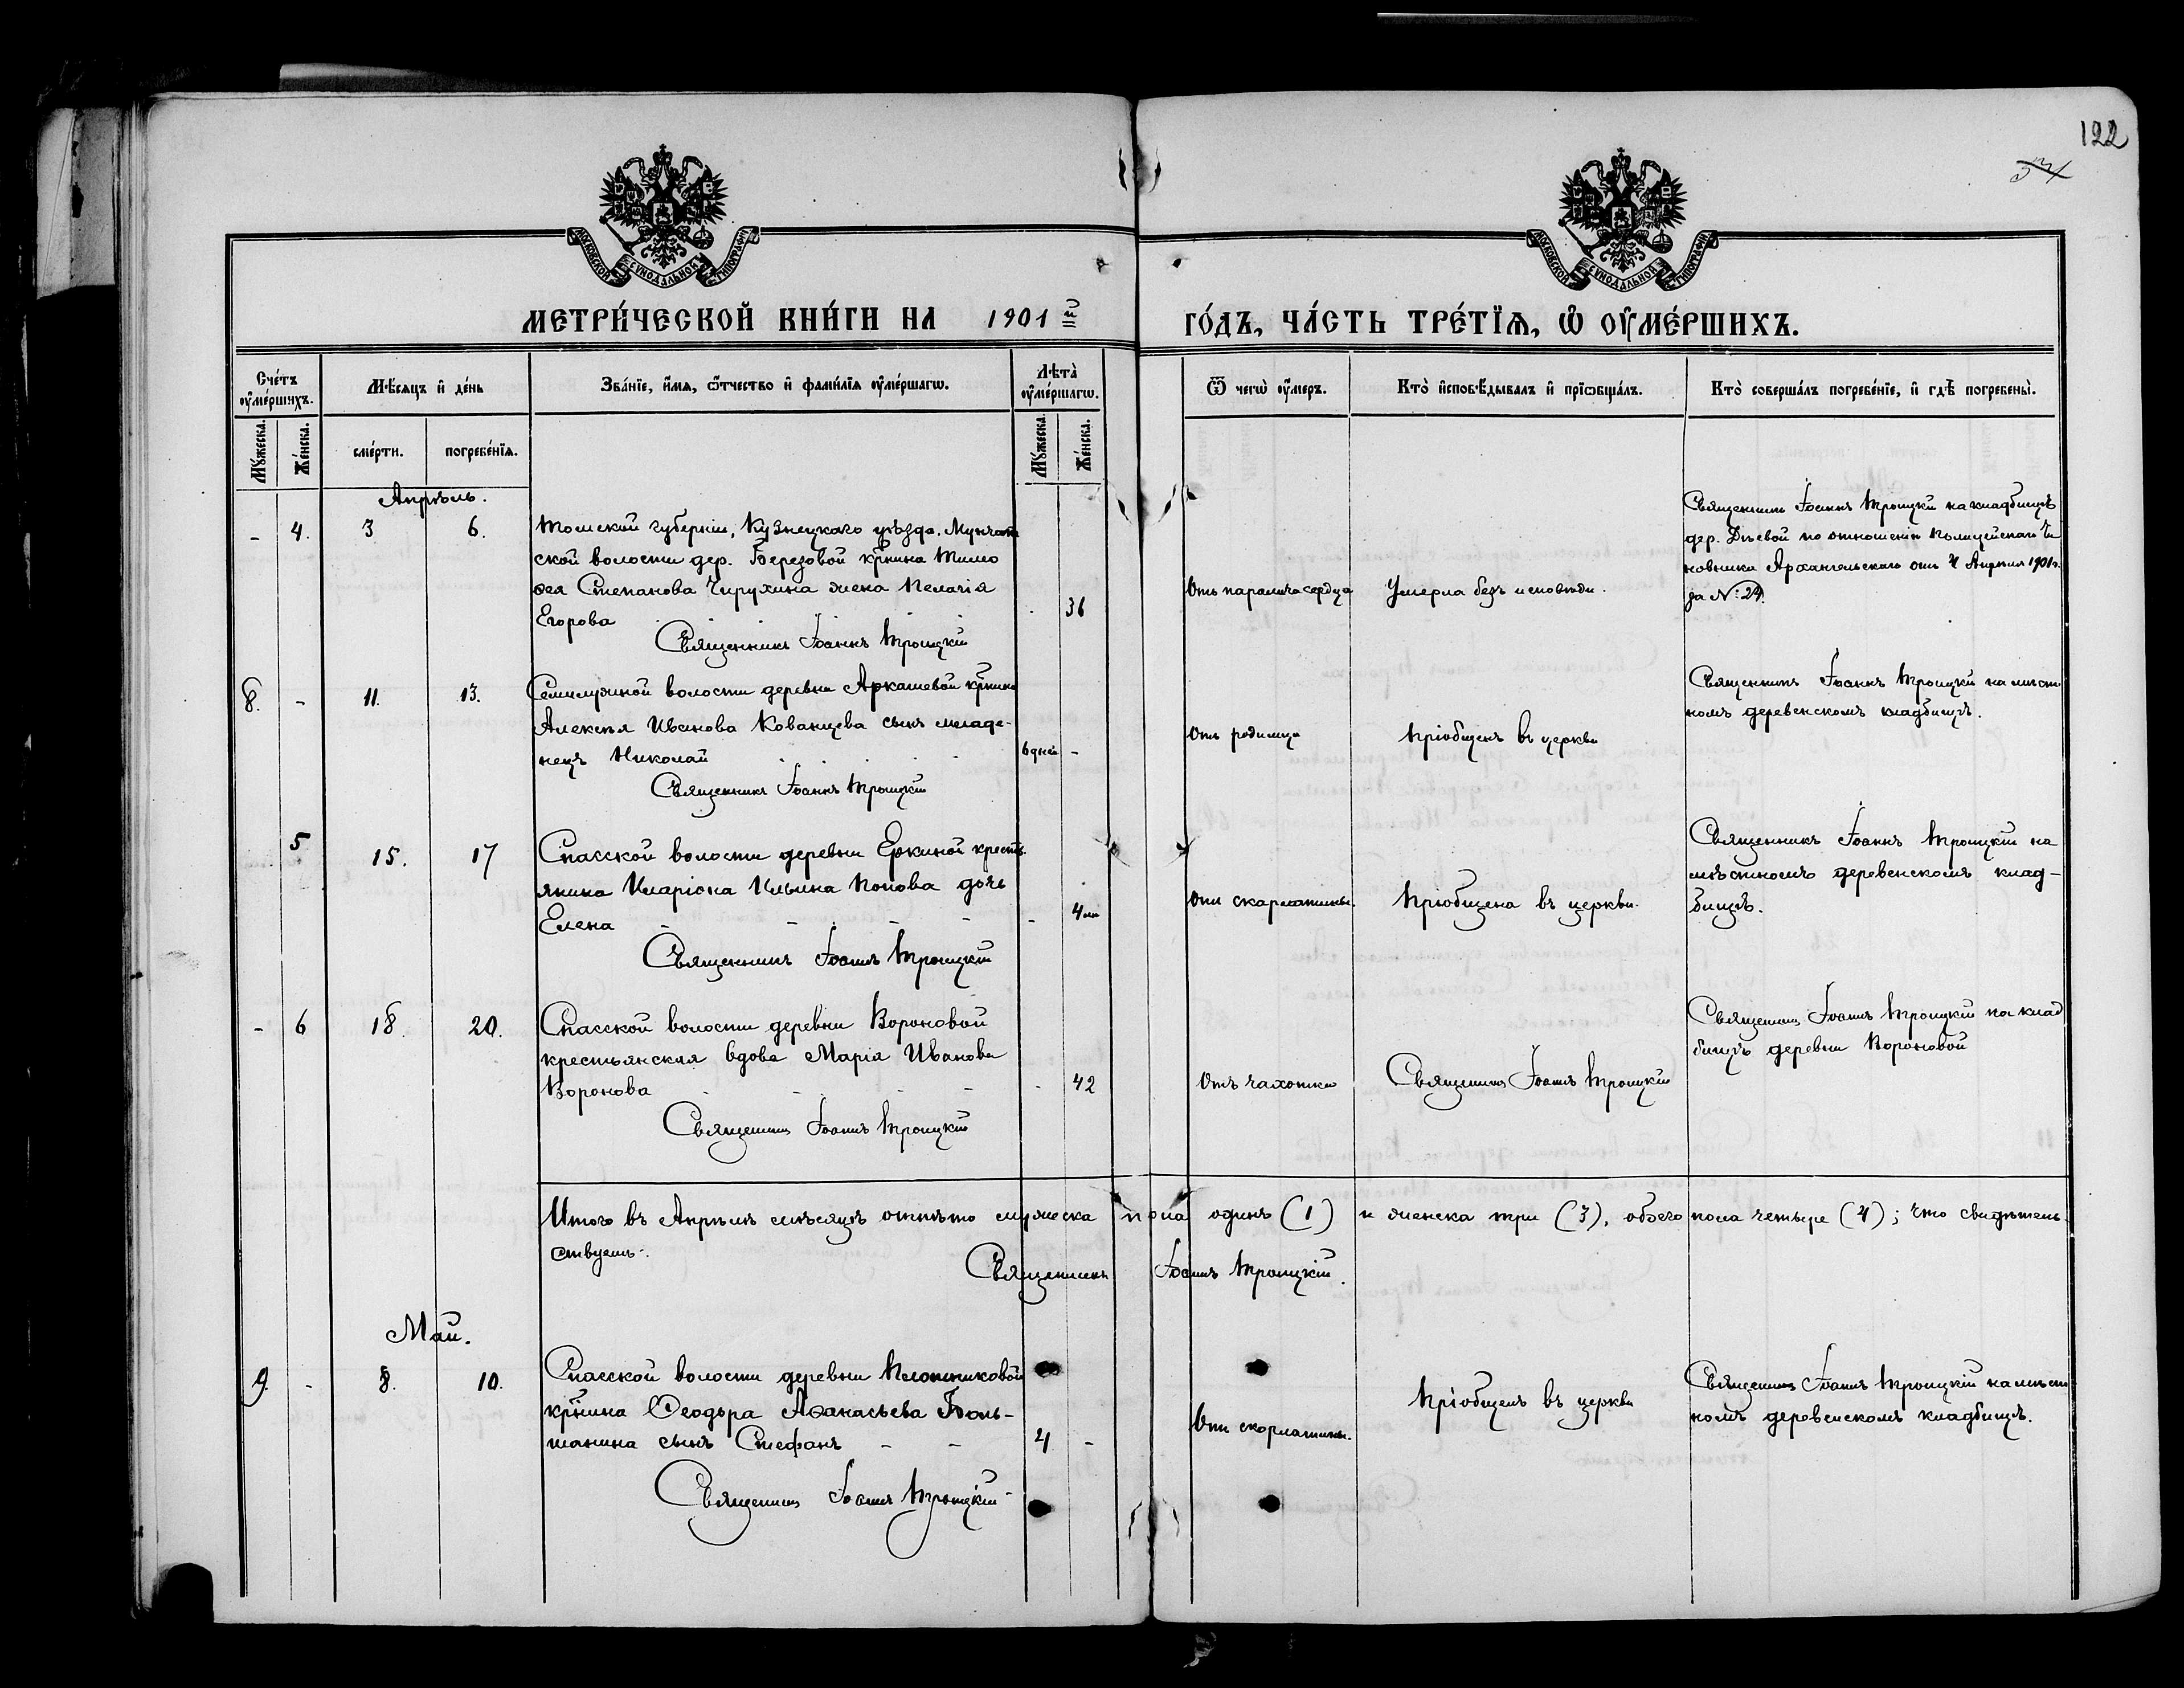 122
МОСКОВСКОЙ СѴНОДАЛЬНОЙ ТИПОГРАФІИ
МОСКОВСКОЙ СѴНОДАЛЬНОЙ ТИПОГРАФІИ
МЕТРИ́ЧЕСКОЙ КНИ́ГИ НА 1901 й ГО́ДЪ, ЧА́СТЬ ТРЕ́ТЇѦ, Ѡ҆ ОУ҆МЕ́РШИХЪ.
Сче́тъ оу҆ме́ршихъ.
Мѣ́сѧцъ и҆ де́нь
Зва́нїе, и҆́мѧ, ѻ҆́тчество и҆ фами́лїѧ оу҆ме́ршагѡ.
Лѣ́та оу҆ме́ршагѡ.
Ѿ чегѡ̀ оу҆́меръ.
Кто̀ и҆сповѣ́дывалъ и҆ прїѡбща́лъ.
Кто̀ соверша́лъ погребе́нїе, и҆ гдѣ̀ погребены̀.
Мꙋ́жеска.
Же́нска.
сме́рти.
погребе́нїѧ.
Мꙋ́жеска.
Же́нска.
Апрѣль.
- 4. 3 6.
Томской губерніи, Кузнецкаго уѣзда, Мунгат
ской волости дер. Березовой кр̃нина Тимо
ѳея Степанова Чирухина жена Пелагія
Егорова . . . . 36
Священникъ Іоаннъ Троицкій
Отъ паралича сердца
Умерла безъ исповѣди.
Священникъ Іоаннъ Троицкій на кладбищѣ
дер. Дѣевой по отношенію Полицейскаго Чи
новника Архангельскаго отъ 4 Апрѣля 1901 г.
за №: 29.
8. - 11. 13.
Семилужной волости деревни Аркашевой кр̃нина
Алексѣя Иванова Кованцева сынъ младе-
нецъ Николай . . . 6 дней -
Священникъ Іоаннъ Троицкій
Отъ родимца
Пріобщенъ въ церкви
Священникъ Іоаннъ Троицкій на мѣст
номъ деревенскомъ кладбищѣ.
5 15. 17
Спасской волости деревни Еркиной кресть
янина Иларіона Ильина Попова дочь
Елена - - - - - 4
Священникъ Іоаннъ Троицкій
Отъ скарлатины.
Пріобщена въ церкви.
Священникъ Іоаннъ Троицкій на
мѣстномъ деревенскомъ клад-
бищѣ.
- 6 18. 20.
Спасской волости деревни Вороновой
крестьянская вдова Марія Иванова
Воронова - - - - - 42
Священникъ Іоаннъ Троицкій
Отъ чахотки
Священникъ Іоаннъ Троицкій
Священникъ Іоаннъ Троицкій на клад
бищѣ деревни Вороновой
Итого въ Апрѣлѣ мѣсяцѣ отпѣто мужеска пола одинъ (1) и женска три (3), обоего пола четыре (4); что свидѣтель
ствуемъ.
Священникъ Іоаннъ Троицкій.
Май.
9. - 8. 10.
Спасской волости деревни Плотниковой
кр̃нина Ѳеодора Аѳанасьева Боль-
шанина сынъ Стефанъ - - 4 -
Священникъ Іоаннъ Троицкій
Отъ скарлатины.
Пріобщенъ въ церкви
Священникъ Іоаннъ Троицкій на мѣст
номъ деревенскомъ кладбищѣ.